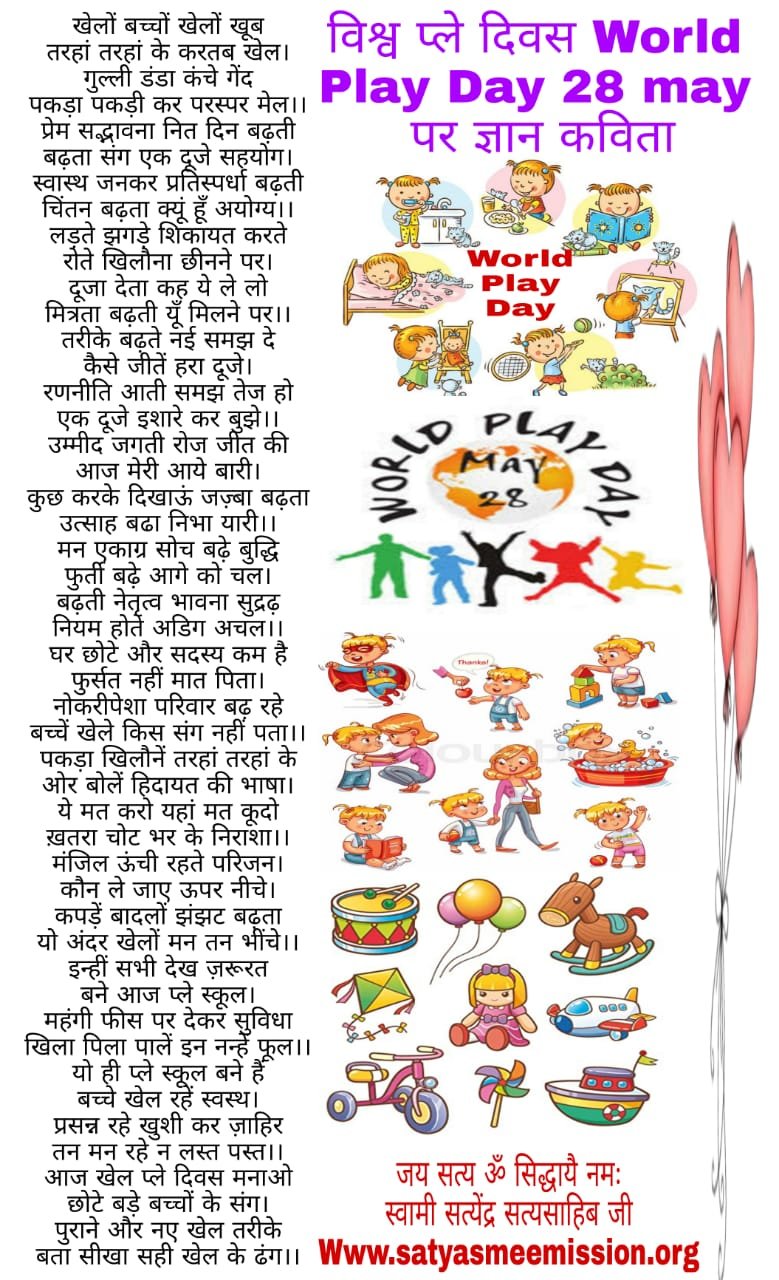 खेलों बच्चों खेलों खूब
तरहां तरहां के करतब खेल।
गुल्ली डंडा कंचे गेंद
पकड़ा पकड़ी कर परस्पर मेल।।
प्रेम सद्भावना नित दिन बढ़ती
बढ़ता संग एक दूजे सहयोग।
स्वास्थ जनकर प्रतिस्पर्धा बढ़ती
चिंतन बढ़ता क्यूं हूँ अयोग्य।।
लड़ते झगड़े शिकायत करते
रोते खिलौना छीनने पर।
दूजा देता कह ये ले लो
मित्रता बढ़ती यूँ मिलने पर।।
तरीके बढ़ते नई समझ दे
कैसे जीतें हरा दूजे।
रणनीति आती समझ तेज हो
एक दूजे इशारे कर बुझे।।
उम्मीद जगती रोज जीत की
आज मेरी आये बारी।
कुछ करके दिखाऊं जज़्बा बढ़ता
उत्साह बढा निभा यारी।।
मन एकाग्र सोच बढ़े बुद्धि
फुर्ती बढ़े आगे को चल।
बढ़ती नेतृत्व भावना सुद्रढ़
नियम होते अडिग अचल।।
घर छोटे और सदस्य कम है
फुर्सत नहीं मात पिता।
नोकरीपेशा परिवार बढ़ रहे
बच्चें खेले किस संग नहीं पता।।
पकड़ा खिलौनें तरहां तरहां के
ओर बोलें हिदायत की भाषा।
ये मत करो यहां मत कूदो
ख़तरा चोट भर के निराशा।।
मंजिल ऊंची रहते परिजन।
कौन ले जाए ऊपर नीचे।
कपड़ें बादलों झंझट बढ़ता
यो अंदर खेलों मन तन भींचे।।
इन्हीं सभी देख ज़रूरत
बने आज प्ले स्कूल।
महंगी फीस पर देकर सुविधा
खिला पिला पालें इन नन्हें फूल।।
यो ही प्ले स्कूल बने हैं
बच्चे खेल रहें स्वस्थ।
प्रसन्न रहे खुशी कर ज़ाहिर
तन मन रहे न लस्त पस्त।।
आज खेल प्ले दिवस मनाओ
छोटे बड़े बच्चों के संग।
पुराने और नए खेल तरीके
बता सीखा सही खेल के ढंग।।
विश्व प्ले दिवस World
Play Day 28 may
पर ज्ञान कविता
World
Play
Day
WORLD PLAY DAY
MAY
28
Thanks!
जय सत्य ॐ सिद्धायै नमः
स्वामी सत्येंद्र सत्यसाहिब जी
Www.satyasmeemission.org